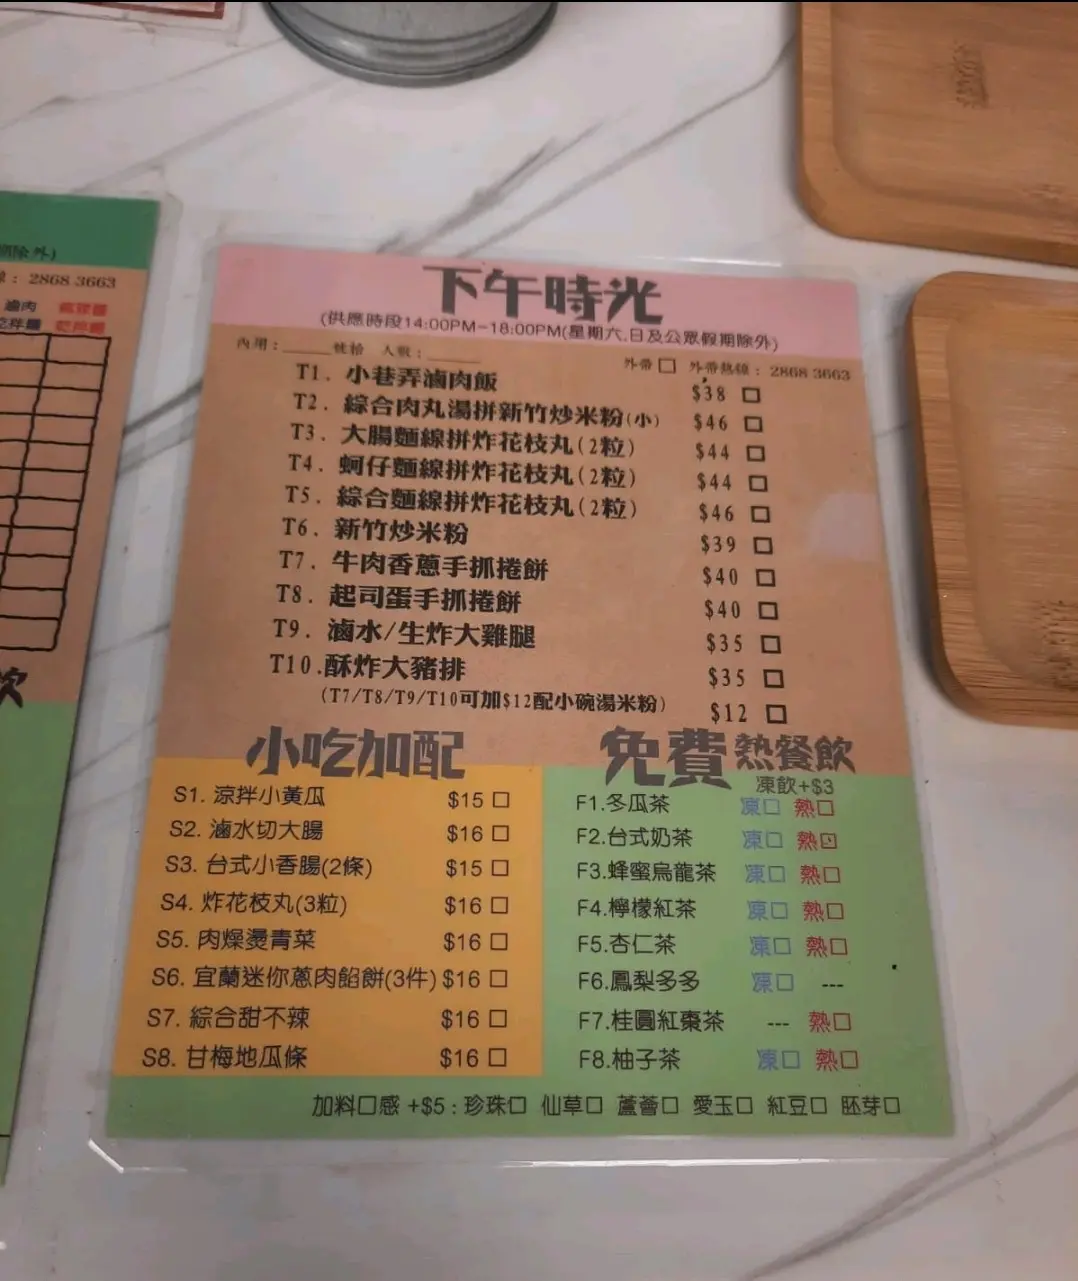 期除外)
: 2868 3663
滷肉
乾拌麵
飲
下午時光
(供應時段14:00PM-18:00PM(星期六.日及公眾假期除外)
內用:_____號枱 人數:_____ 外帶□ 外帶熱線: 2868 3663
T1. 小巷弄滷肉飯 $38 □
T2. 綜合肉丸湯拼新竹炒米粉(小) $46 □
T3. 大腸麵線拼炸花枝丸(2粒) $44 □
T4. 蚵仔麵線拼炸花枝丸(2粒) $44 □
T5. 綜合麵線拼炸花枝丸(2粒) $46 □
T6. 新竹炒米粉 $39 □
T7. 牛肉香蔥手抓捲餅 $40 □
T8. 起司蛋手抓捲餅 $40 □
T9. 滷水/生炸大雞腿 $35 □
T10.酥炸大豬排 $35 □
(T7/T8/T9/T10可加$12配小碗湯米粉) $12 □
小吃加配
S1. 涼拌小黃瓜 $15 □
S2. 滷水切大腸 $16 □
S3. 台式小香腸(2條) $15 □
S4. 炸花枝丸(3粒) $16 □
S5. 肉燥燙青菜 $16 □
S6. 宜蘭迷你蔥肉餡餅(3件) $16 □
S7. 綜合甜不辣 $16 □
S8. 甘梅地瓜條 $16 □
免費熱餐飲
凍飲+$3
F1.冬瓜茶 凍□ 熱□
F2.台式奶茶 凍□ 熱□
F3.蜂蜜烏龍茶 凍□ 熱□
F4.檸檬紅茶 凍□ 熱□
F5.杏仁茶 凍□ 熱□
F6.鳳梨多多 凍□ ---
F7.桂圓紅棗茶 --- 熱□
F8.柚子茶 凍□ 熱□
加料口感 +$5 : 珍珠□ 仙草□ 蘆薈□ 愛玉□ 紅豆□ 胚芽□